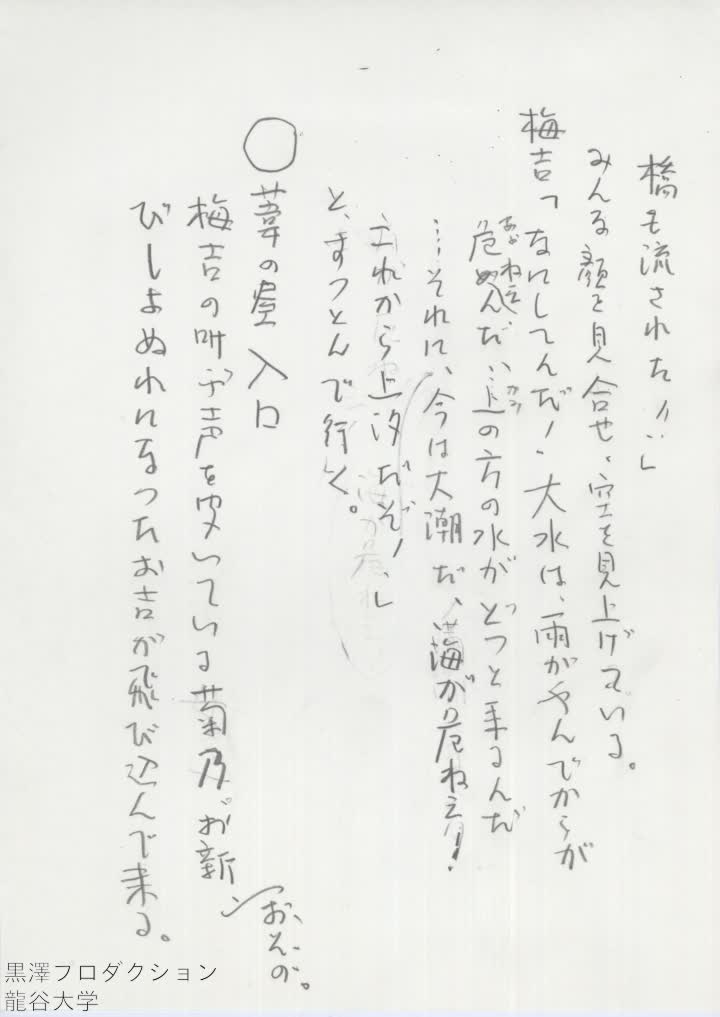 橋も流された！」
みんな顔を見合せ、空を見上げている。
梅吉「なにしてんだ！大水は、雨がやんでからが
危ねえんだ、上の方の水がどつと来るんだ
…それに、今は大潮だ、海が危ねえ！
これから上汐だぞ！」
と、すつとんで行く。
○葦の屋 入口
梅吉の叫び声を聞いている菊乃、お新、
おその。
びしよぬれになつたお吉が飛び込んで来る。
黒澤プロダクション
龍谷大学